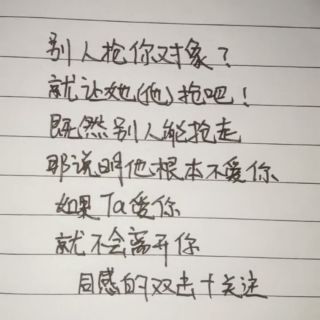 别人抢你对象？
就让她(他)抢吧！
既然别人能抢走
那说明他根本不爱你
如果Ta爱你
就不会离开你
同感的双击十关注